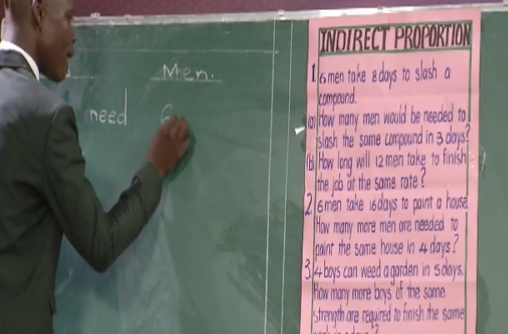 Men.
need 6
INDIRECT PROPORTION
1. 6 men take 8 days to slash a
compound.
(a) How many men would be needed to
slash the same compound in 3 days?
(b) How long will 12 men take to finish
the job at the same rate?
2. 6 men take 16 days to paint a house.
How many more men are needed to
paint the same house in 4 days?
3. 4 boys can weed a garden in 5 days.
How many more boys of the same
strength are required to finish the same